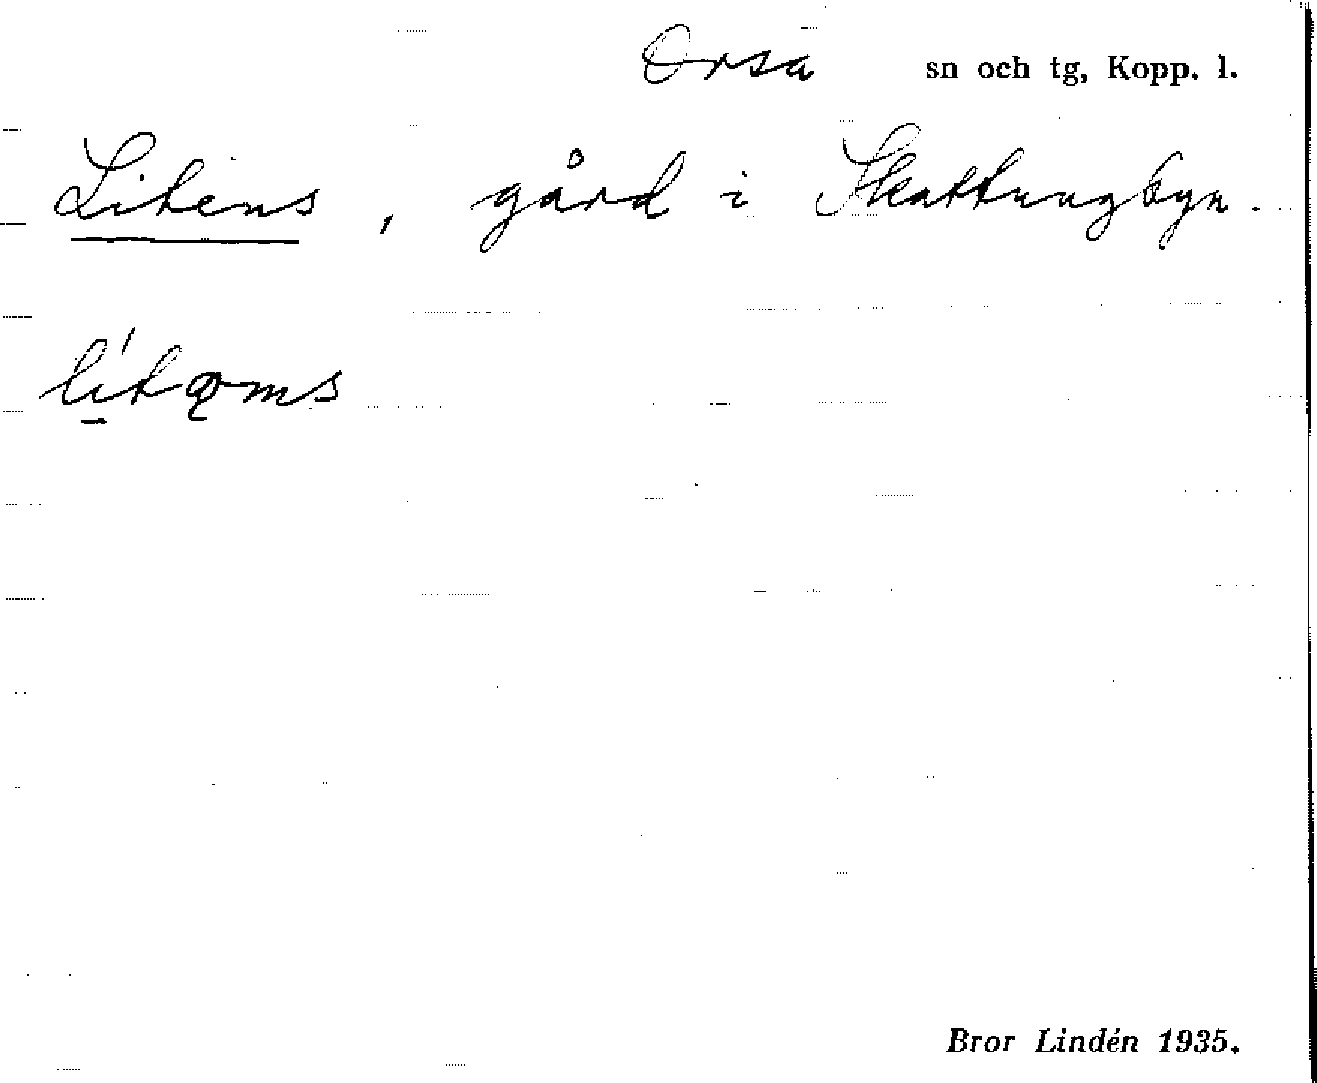 Orsa sn och tg, Kopp. l.
Litens, gård i Skattungbyn.
Bror Lindén 1935.